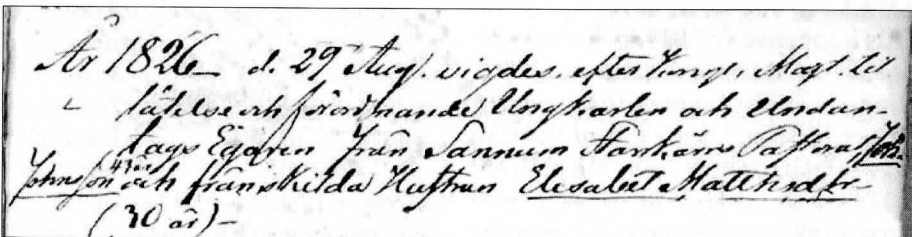 År 1826 d. 29 Aug. vigdes efter Kungl. Maj:t til
låtelse och förordnande Ungkarlen och Undan-
tags Egaren från Sannum Pastorat Joh.
Johnsson 43 år och frånskilda Hustrun Elisabet Mattsdtr
(30 år) –